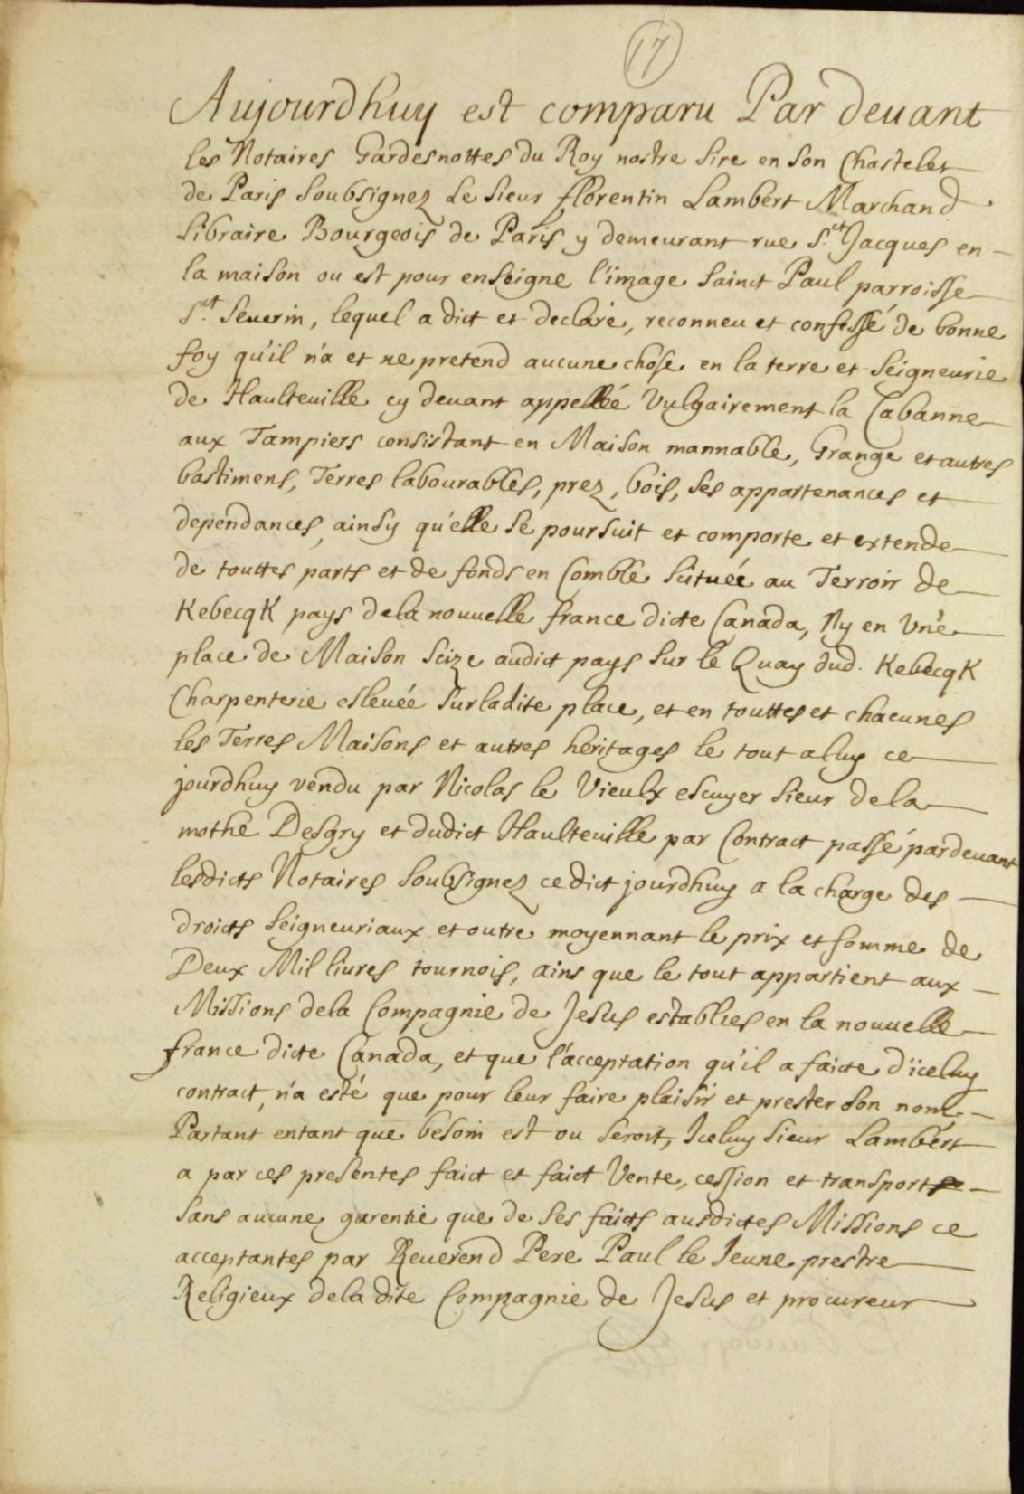 17
Aujourdhuy est comparu Par deuant
les Notaires Gardesnottes du Roy nostre Sire en son Chastelet
de Paris soubsignez Le Sieur fflorentin Lambert Marchand
Libraire Bourgeois de Paris y demeurant rue S.ct Jacques en
la maison ou est pour enseigne l'image sainct Paul parroisse
S.ct Seuerin, lequel a dict et declaré, reconneu et confessé de bonne
foy qu'il n'a et ne pretend aucune chose en la terre et Seigneurie
de Haulteuille cy deuant appellé Vulgairement la Cabanne
aux Tampiers consistant en Maison mannable, Grange et autres
bastimens, Terres labourables, prez, bois, ses appartenances et
dependances, ainsy qu'elle se poursuit et comporte et extende
de touttes parts et de fonds en Comble scituée au Terroir de
KebecqK pays dela nouuelle france dicte Canada, Ny en Vne
place de Maison scize audict pays sur le Quay dud. KebecqK
Charpenterie esleuée sur ladite place, et en touttes et chacunes
les Terres Maisons et autres heritages le tout a luy ce
jourdhuy vendu par Nicolas le Vieulx escuyer sieur dela
mothe Desgry et dudict Haulteuille par Contract passé pardeuant
lesdicts Notaires soubsignez cedict jourdhuy a la charge des
droicts seigneuriaux et outre moyennant le prix et somme de
Deux Mil liures tournois, ains que le tout appartient aux
Missions dela Compagnie de Jesus establies en la nouuelle
france dicte Canada, et que l'acceptation qu'il a faicte d'iceluy
contract, n'a esté que pour leur faire plaisir et prester son nom
Partant entant que besoin est ou seroit, Iceluy sieur Lambert
a par ces presentes faict et faict Vente, cession et transport
sans aucune garentie que de ses faicts ausdictes Missions ce
acceptantes par Reuerend Pere Paul le Ieune prestre
Religieux dela dite Compagnie de Jesus et procureur